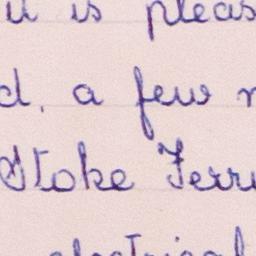 it is pleas
d. a few
Stoke Ferr
electrical